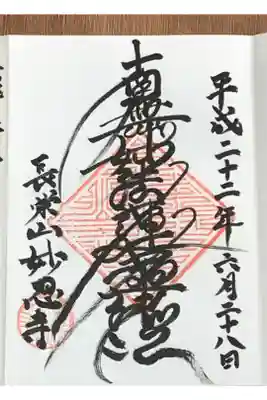 平成二十二年 六月二十八日
南無妙法蓮華経
長栄山 妙忍寺